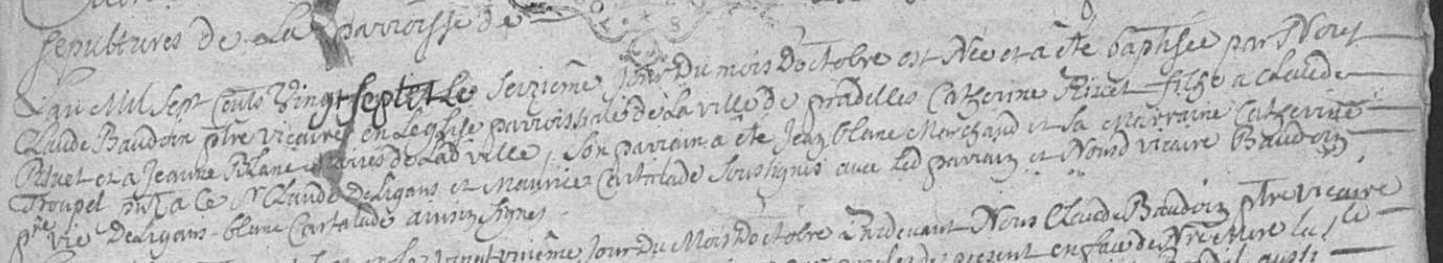 sepultures de La parroisse de
L'an Mil sept Cents vingt sept et Le seizieme jour Du mois D'octobre est Née et a été baptisée par Nous
Claude Baudoin ptre vicaire en L'eglise parroissiale de La ville de pradelles Catherine Rivet fille a Claude
Rivet et a Jeanne Blanc de Lad ville, Son parrain a été Jean blanc Marchand et sa Marraine Catherine
Troupel a ce Sr Claude DeLigans et Maurice Cartalade Soussignés avec Led parrain et Nousd vicaire Baudoin
ptre vic DeLigans blanc Cartalade ainsin signés
vingt unième jour Du Mois D'octobre pardevant Nous Claude Baudoin ptre vicaire
present en face de Nre Mere La Ste